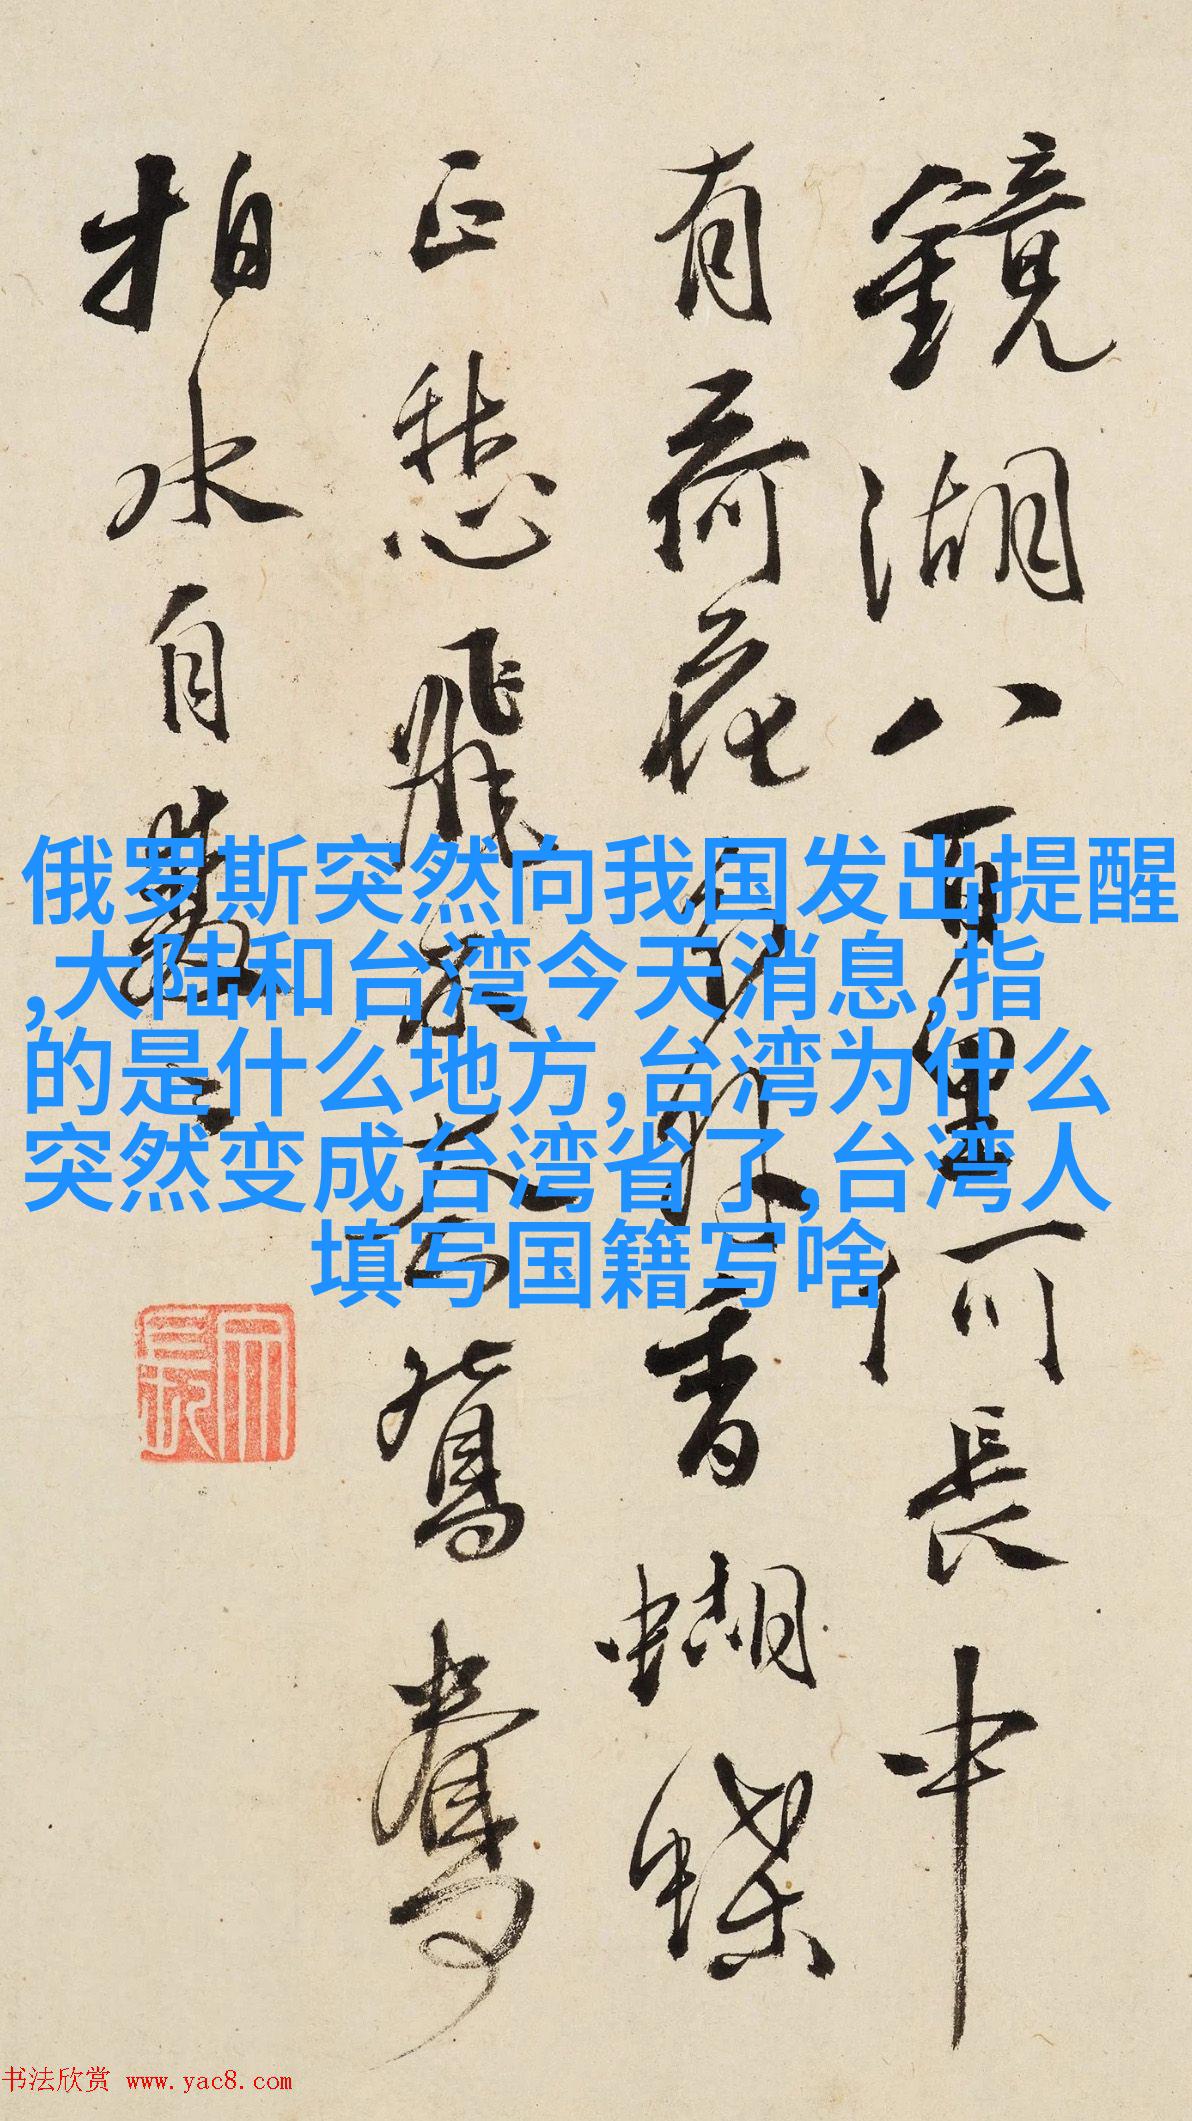 鏡湖八百里何長中
有荷花
正愁飛
鴛鴦
拍水自
香蝴蝶
俄罗斯突然向我国发出提醒
,大陆和台湾今天消息,指
的是什么地方,台湾为什么
突然变成台湾省了,台湾人
填写国籍写啥
书法欣赏 www.yac8.com